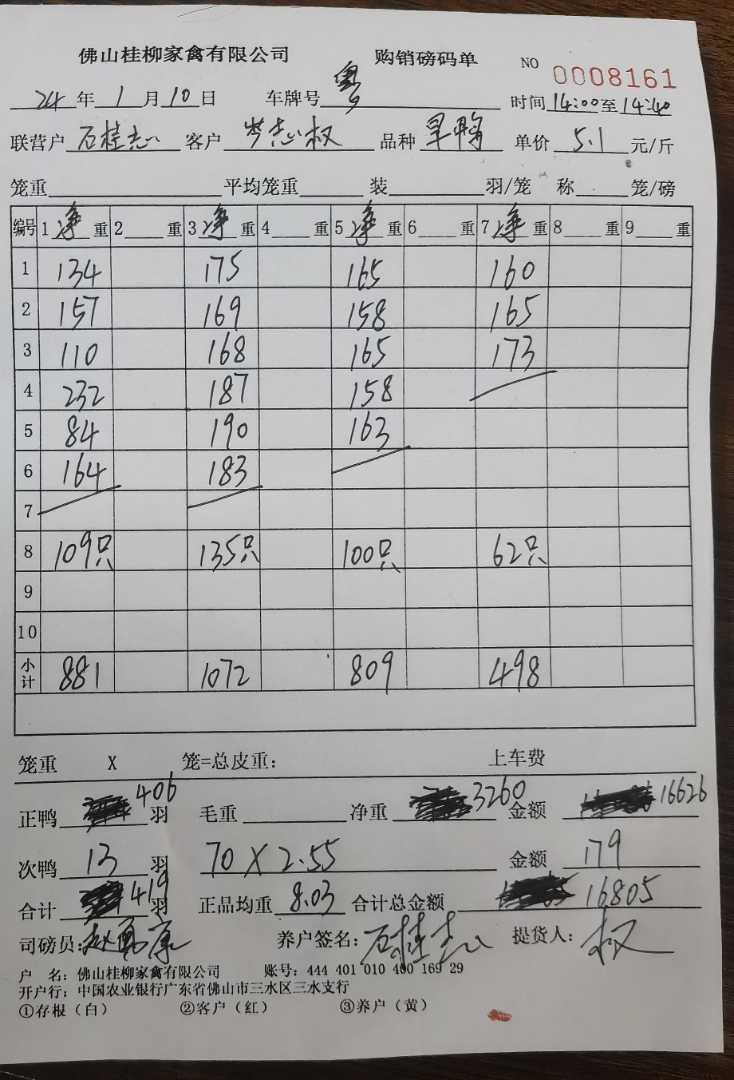 佛山桂柳家禽有限公司 购销磅码单 NO 0008161
24年1月10日 车牌号 粤 时间14:00至14:40
联营户 石桂志 客户 岑志权 品种 旱鸭 单价 5.1 元/斤
笼重 平均笼重 装 羽/笼 称 笼/磅
编号 1净重 2 重 3净重 4 重 5净重 6 重 7净重 8 重 9 重
1 134 175 165 160
2 157 169 158 165
3 110 168 165 173
4 232 187 158
5 84 190 163
6 164 183
7
8 109只 135只 100只 62只
9
10
小计 881 1072 809 498
笼重 X 笼=总皮重: 上车费
正鸭 406 羽 毛重 净重 3260 金额 16626
次鸭 13 羽 70×2.55 金额 179
合计 419 羽 正品均重 8.03 合计总金额 16805
司磅员: 养户签名: 石桂志 提货人: 权
户 名: 佛山桂柳家禽有限公司 账号: 444 401 010 400 169 29
开户行: 中国农业银行广东省佛山市三水区三水支行
①存根(白) ②客户(红) ③养户(黄)